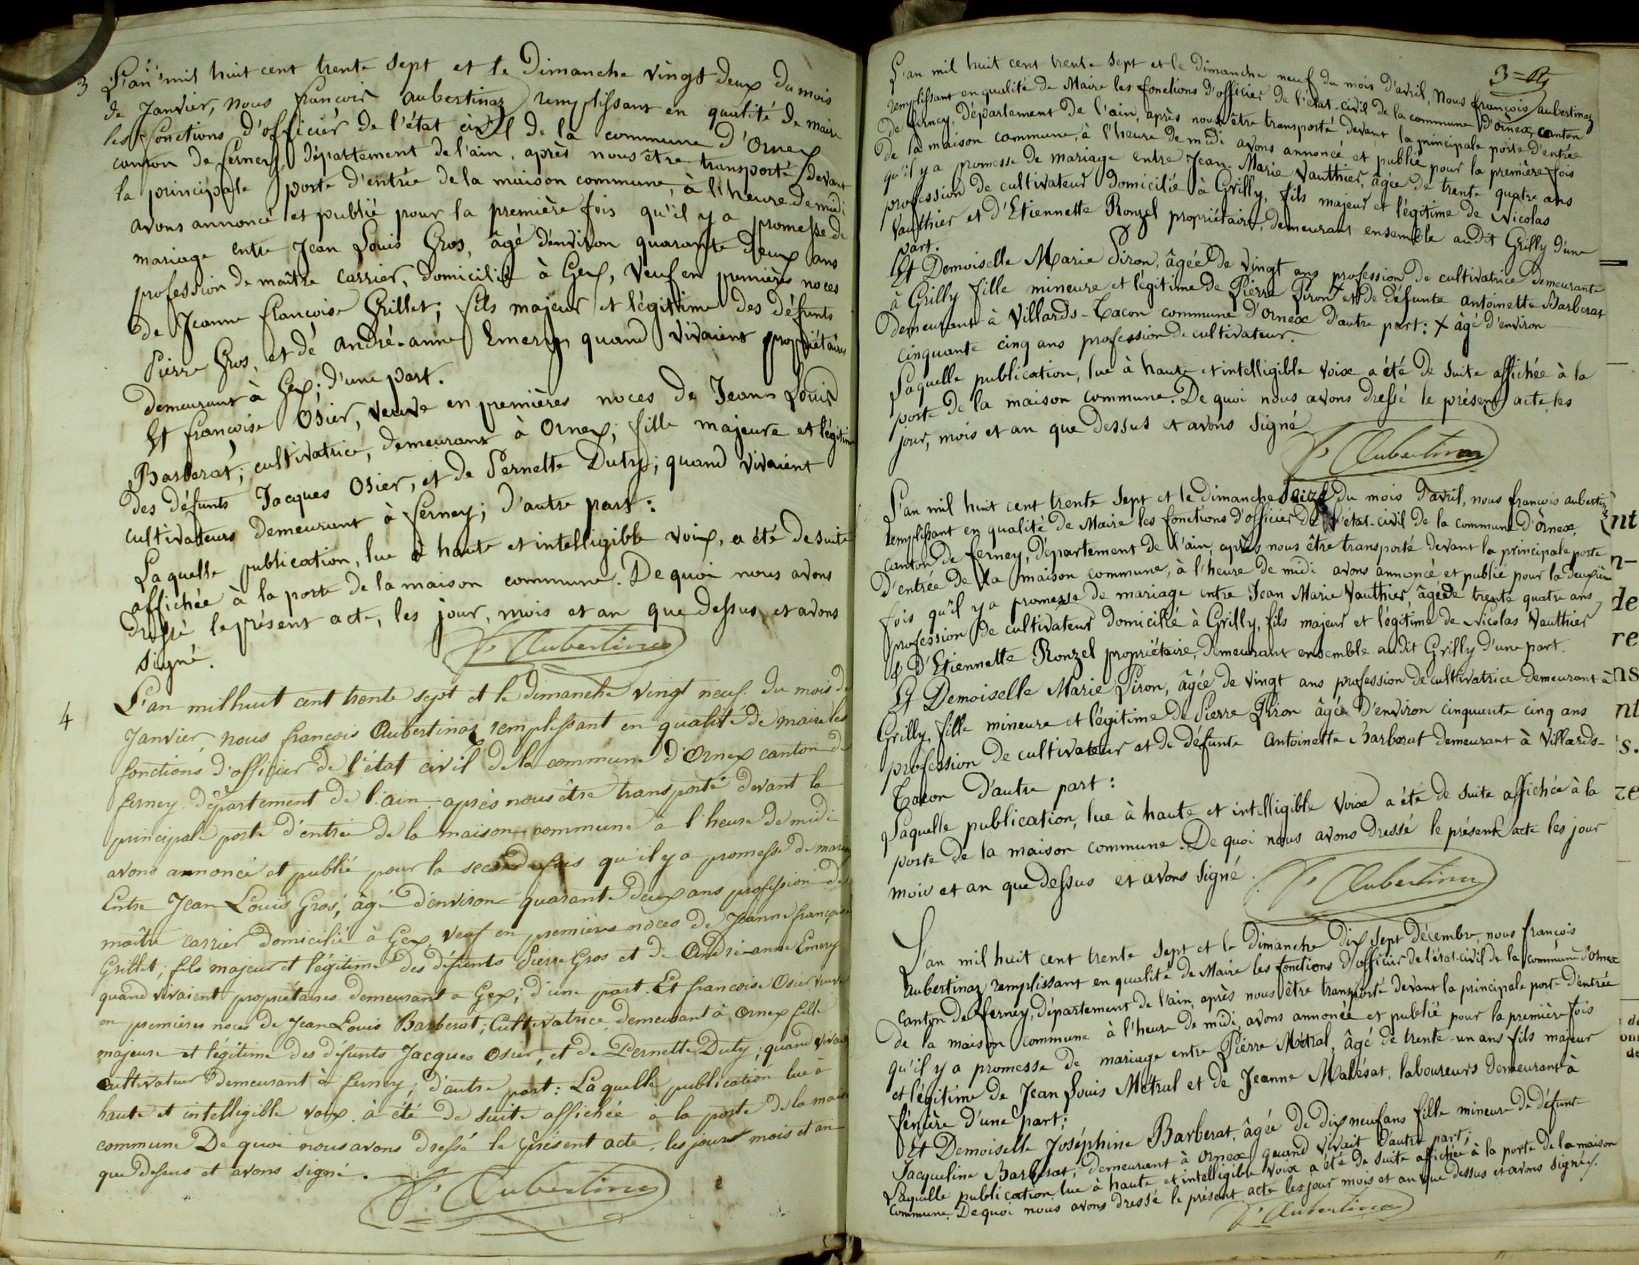 3 L'an mil huit cent trente sept et le Dimanche vingt deux du mois
de Janvier, nous françois Aubertinaz remplissant en qualité de maire
les fonctions d'officier de l'état civil de la commune d'Ornex
canton de ferney, département de l'ain, après nous être transporté devant
la principale porte d'entrée de la maison commune, à l'heure de midi
avons annoncé et publié pour la première fois qu'il y a promesse de
mariage entre Jean Louis Gros, âgé d'environ quarante deux ans
profession de maître carrier, domicilié à Gex, veuf en premières noces
de Jeanne françoise Grillet; fils majeur et légitime des défunts
Pierre Gros, et de andré-anne Emery quand vivaient propriétaires
demeurant à Gex; d'une part.
Et françoise Osier, veuve en premières noces de Jean Louis
Barberat; cultivatrice, demeurant à Ornex, fille majeure et légitime
des défunts Jacques Osier, et de Pernette Duty; quand vivaient
cultivateurs demeurant à ferney; d'autre part:
Laquelle publication, lue à haute et intelligible voix, a été de suite
affichée à la porte de la maison commune. De quoi nous avons
dressé le présent acte, les jour, mois et an que dessus, et avons
signé.
f. Aubertinaz
4 L'an mil huit cent trente sept et le dimanche vingt neuf du mois de
Janvier, nous françois Aubertinaz remplissant en qualité de maire les
fonctions d'officier de l'état civil de la commune d'Ornex canton de
ferney département de l'ain, après nous être transporté devant la
principale porte d'entrée de la maison commune à l'heure de midi
avons annoncé et publié pour la seconde fois qu'il y a promesse de mariage
Entre Jean Louis Gros, âgé d'environ quarante deux ans profession de
maître carrier domicilié à Gex, veuf en premières noces de Jeanne françoise
Grillet, fils majeur et légitime des défunts Pierre Gros et de André-anne Emery
quand vivaient propriétaires demeurant à Gex; d'une part. Et francoise Osier veuve
en premières noces de Jean Louis Barberat, Cultivatrice demeurant à Ornex fille
majeure et légitime des défunts Jacques Osier, et de Pernette Duty, quand vivaient
cultivateur demeurant à ferney; d'autre part: Laquelle publication lue à
haute et intelligible voix à été de suite affichée à la porte de la maison
commune De quoi nous avons dressé le présent acte, les jours mois et an
que dessus et avons signé.
f. Aubertinaz
3
L'an mil huit cent trente sept et le dimanche neuf du mois d'avril, Nous françois Aubertinaz
remplissant en qualité de Maire les fonctions d'officier de l'état-civil de la commune d'Ornex, canton
de ferney, Département de l'ain, après nous être transporté devant la principale porte d'entrée
de la maison commune, à l'heure de midi avons annoncé et publié pour la première fois
qu'il y a promesse de mariage entre Jean Marie Vauthier, âgée de trente quatre ans
profession de cultivateur domicilié à Grilly, fils majeur et légitime de Nicolas
Vauthier et d'Etiennette Ronzel propriétaire, demeurant ensemble audit Grilly d'une
part.
Et Demoiselle Marie Piron, âgée de vingt ans profession de cultivatrice demeurante
à Grilly fille mineure et légitime de Pierre Piron X et de défunte antoinette Barberat
demeurant à Villards-Tacon commune d'Ornex d'autre part: X âgé d'environ
cinquante cinq ans profession de cultivateur.
Laquelle publication, lue à haute et intelligible voix a été de suite affichée à la
porte de la maison commune. De quoi nous avons dressé le présent acte, les
jour, mois et an que dessus et avons signé
f. Aubertinaz
L'an mil huit cent trente sept et le dimanche seize du mois d'avril, nous françois aubertinaz
remplissant en qualité de Maire les fonctions d'officier de l'état-civil de la commune d'Ornex,
canton de ferney, Département de l'ain, après nous être transporté devant la principale porte
d'entrée de la maison commune, à l'heure de midi avons annoncé et publié pour la deuxième
fois qu'il y a promesse de mariage entre Jean Marie Vauthier, âgée de trente quatre ans,
profession de cultivateur domicilié à Grilly, fils majeur et légitime de Nicolas Vauthier
& d'Etiennette Ronzel propriétaire, demeurant ensemble audit Grilly d'une part.
Et Demoiselle Marie Piron, âgée de vingt ans profession de cultivatrice demeurant à
Grilly, fille mineure et légitime de Pierre Piron âgée d'environ cinquante cinq ans
profession de cultivateur et de défunte Antoinette Barberat demeurant à Villards-
Tacon d'autre part:
Laquelle publication, lue à haute et intelligible voix a été de suite affichée à la
porte de la maison commune. De quoi nous avons dressé le présent acte les jour
mois et an que dessus et avons signé.
f. Aubertinaz
L'an mil huit cent trente sept et le dimanche dix sept décembre, nous françois
Aubertinaz, remplissant en qualité de Maire les fonctions d'officier de l'état-civil de la commune d'Ornex
canton de ferney, département de l'ain, après nous être transporté devant la principale porte d'entrée
de la maison commune à l'heure de midi, avons annoncé et publié pour la première fois
qu'il y a promesse de mariage entre Pierre Métral, âgé de trente-un ans fils majeur
et légitime de Jean Louis Métral et de Jeanne Malésat, laboureurs demeurant à
d'une part;
Et Demoiselle Joséphine Barberat, âgée de dix neuf ans fille mineure de défunte
Jacqueline Barberat, demeurant à Ornex quand vivait d'autre part;
Laquelle publication, lue à haute et intelligible voix a été de suite affichée à la porte de la maison
commune. De quoi nous avons dressé le présent acte les jour mois et an que dessus et avons signé.
f. Aubertinaz
nt
n-
de
re
ns
nt
s.
ze